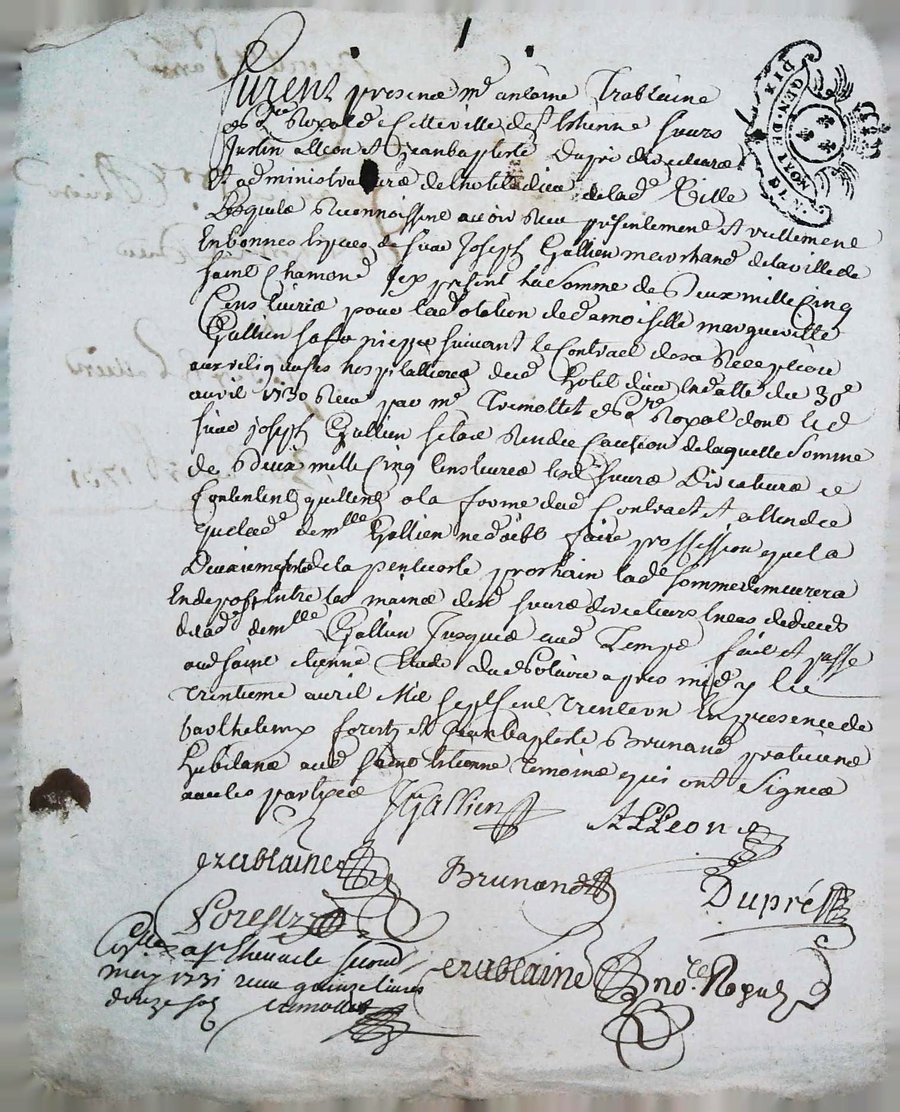 DIX DEN. DE
LYON MOY. PAP
furent presens me antoine Trablaine
no.re Royal de cette ville de st Etienne sieurs
Justin alleon et Jean baptiste Dupré directeurs
et administrateurs de l'hotel dieu de lad.e Ville
Lesquels Reconnoissent avoir Reçu presentement et reellement
En bonnes Especes de sieur Joseph Gallien marchand de la ville de
saint Chamond Icy present la somme de Deux mille Cinq
Cens Livres pour la dotation de damoiselle margueritte
Gallien sa niepce suivant le Contract de sa Reception
aux religieuses hospitallieres dud. hotel dieu En datte du 30e
avril 1730 Reçu par me Tremollet no.re Royal dont led
sieur joseph Gallien setoit Rendu Caution de laquelle somme
de Deux mille Cinq Cens Livres lesd. sieurs Directeurs se
Contentent quittent a la forme dud Contract et attendu
que lad.e dem.lle Gallien ne doibt faire proffession que la
Deuxieme feste de la pentecoste prochain lad.e somme demeurera
En depost Entre les mains desd sieurs directeurs
de lad. dem.lle Gallien Jusques aud Temps fait et passé
aud saint etienne Etude du no.re apres midy le
trentieme avril Mil sept cent trente un En presence de
barthelemy forest et Jean baptiste Brunand praticiens
habitans aud saint Etienne temoins qui ont signés
avec les parties
J Gallien
ALLeon
Trablaine
Brunand
Dupré
Forest
Con.lle a st Etienne le second
may 1731 reçu quinze livres
douze sols Tremollet
Trablaine no.re Royal
1731